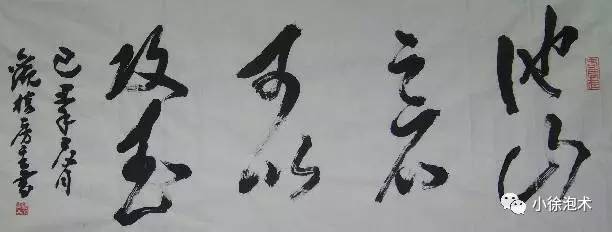 他山
之石
可以
攻玉
己丑年月
书
小徐泡术